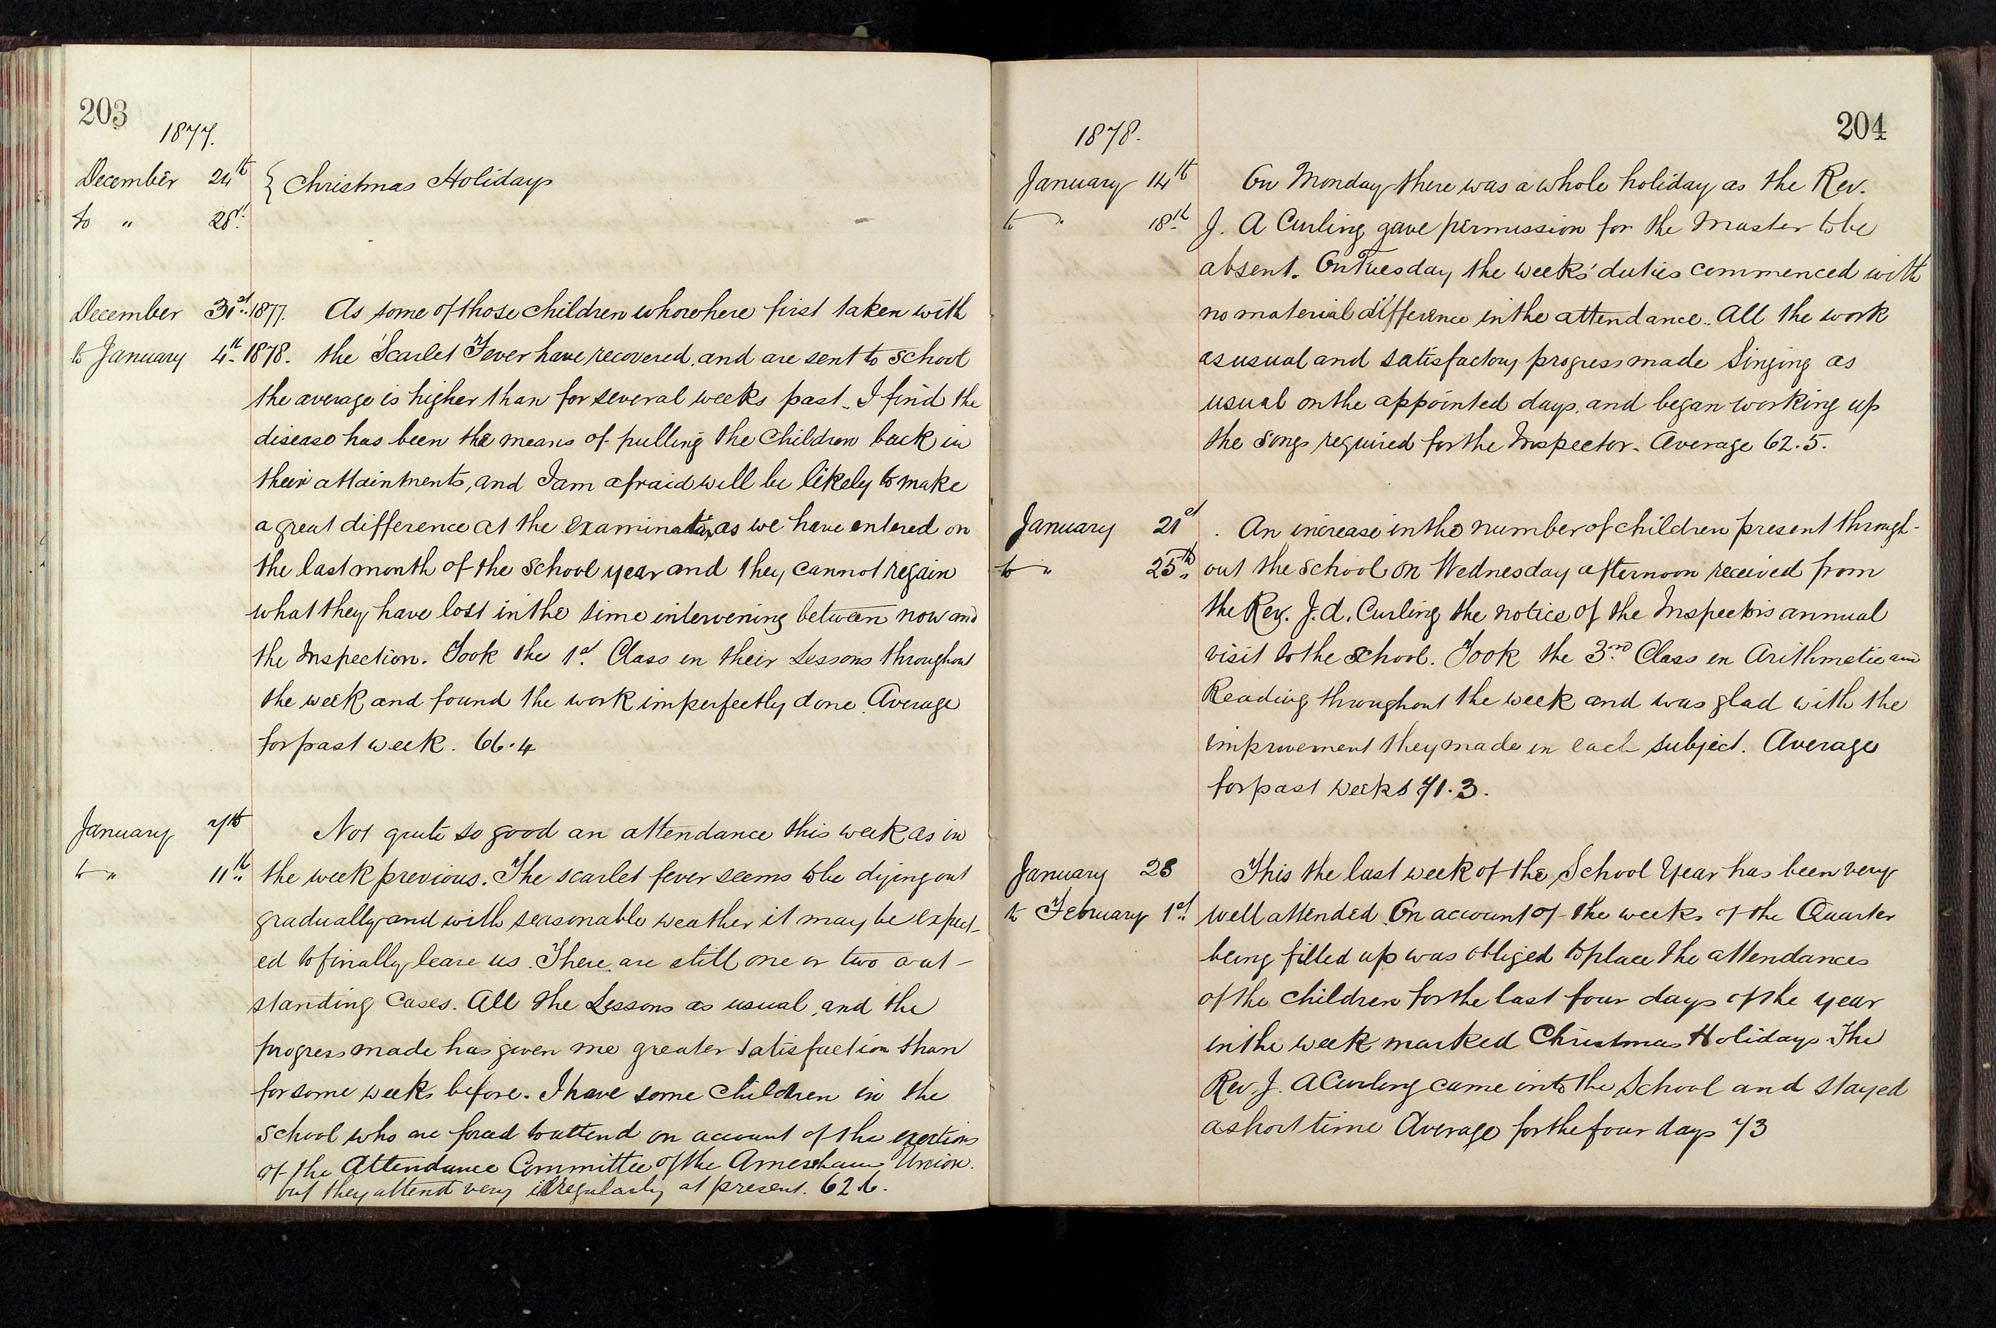 203
1877.
December 24th { Christmas Holidays
to " 28th.
December 31st. 1877. As some of those children who where first taken with
to January 4th. 1878. the Scarlet Fever have recovered, and are sent to School
the average is higher than for several weeks past. I find the
disease has been the means of pulling the children back in
their attainments, and I am afraid will be likely to make
a great difference at the examination, as we have entered on
the last month of the school year and they cannot regain
what they have lost in the time intervening between now and
the Inspection. Took the 1st. Class in their Lessons throughout
the week and found the work imperfectly done. Average
for past week. 66.4
January 7th Not quite so good an attendance this week as in
to " 11th. the week previous. The scarlet fever seems to be dying out
gradually and with seasonable weather it may be expect-
ed to finally leave us. There are still one or two out-
standing cases. All the Lessons as usual, and the
progress made has given me greater satisfaction than
for some weeks before. I have some children in the
school who are forced to attend on account of the exertions
of the Attendance Committee of the Amersham Union.
but they attend very irregularly at present. 62.6.
204
1878.
January 14th On Monday there was a whole holiday as the Rev.
to " 18th. J. A Curling gave permission for the Master to be
absent. On Tuesday the weeks' duties commenced with
no material difference in the attendance. All the work
as usual and satisfactory progress made Singing as
usual on the appointed days, and began working up
the songs required for the Inspector. Average 62.5.
January 21st. An increase in the number of children present through-
to " 25th. out the school on Wednesday afternoon received from
the Rev. J. A. Curling the notice of the Inspectors annual
visit to the school. Took the 3rd Class in Arithmetic and
Reading throughout the week and was glad with the
improvement they made in each subject. Average
for past weeks 71.3.
January 28 This the last week of the School Year has been very
to February 1st. well attended. On account of the weeks of the Quarter
being filled up was obliged to place the attendances
of the children for the last four days of the year
in the week marked Christmas Holidays. The
Rev. J. A Curling came into the School and stayed
a short time Average for the four days 73